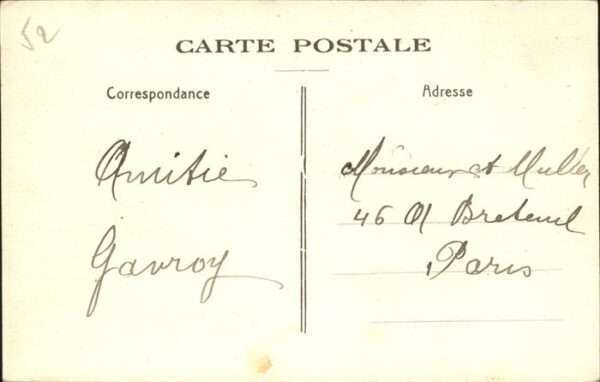 52
CARTE POSTALE
Correspondance
Amitie
Gavroy
Adresse
Monsieur et Muller
46 Breteuil
Paris